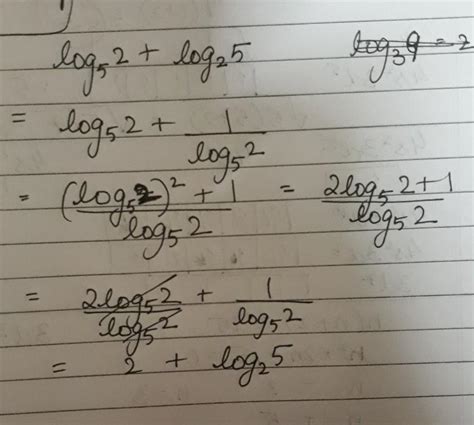 log₅2 + log₂5 log₃9 = 2
= log₅2 + 1/log₅2
= (log₅2)² + 1/log₅2 = 2log₅2+1/log₅2
= 2log₅2/log₅2 + 1/log₅2
= 2 + log₂5